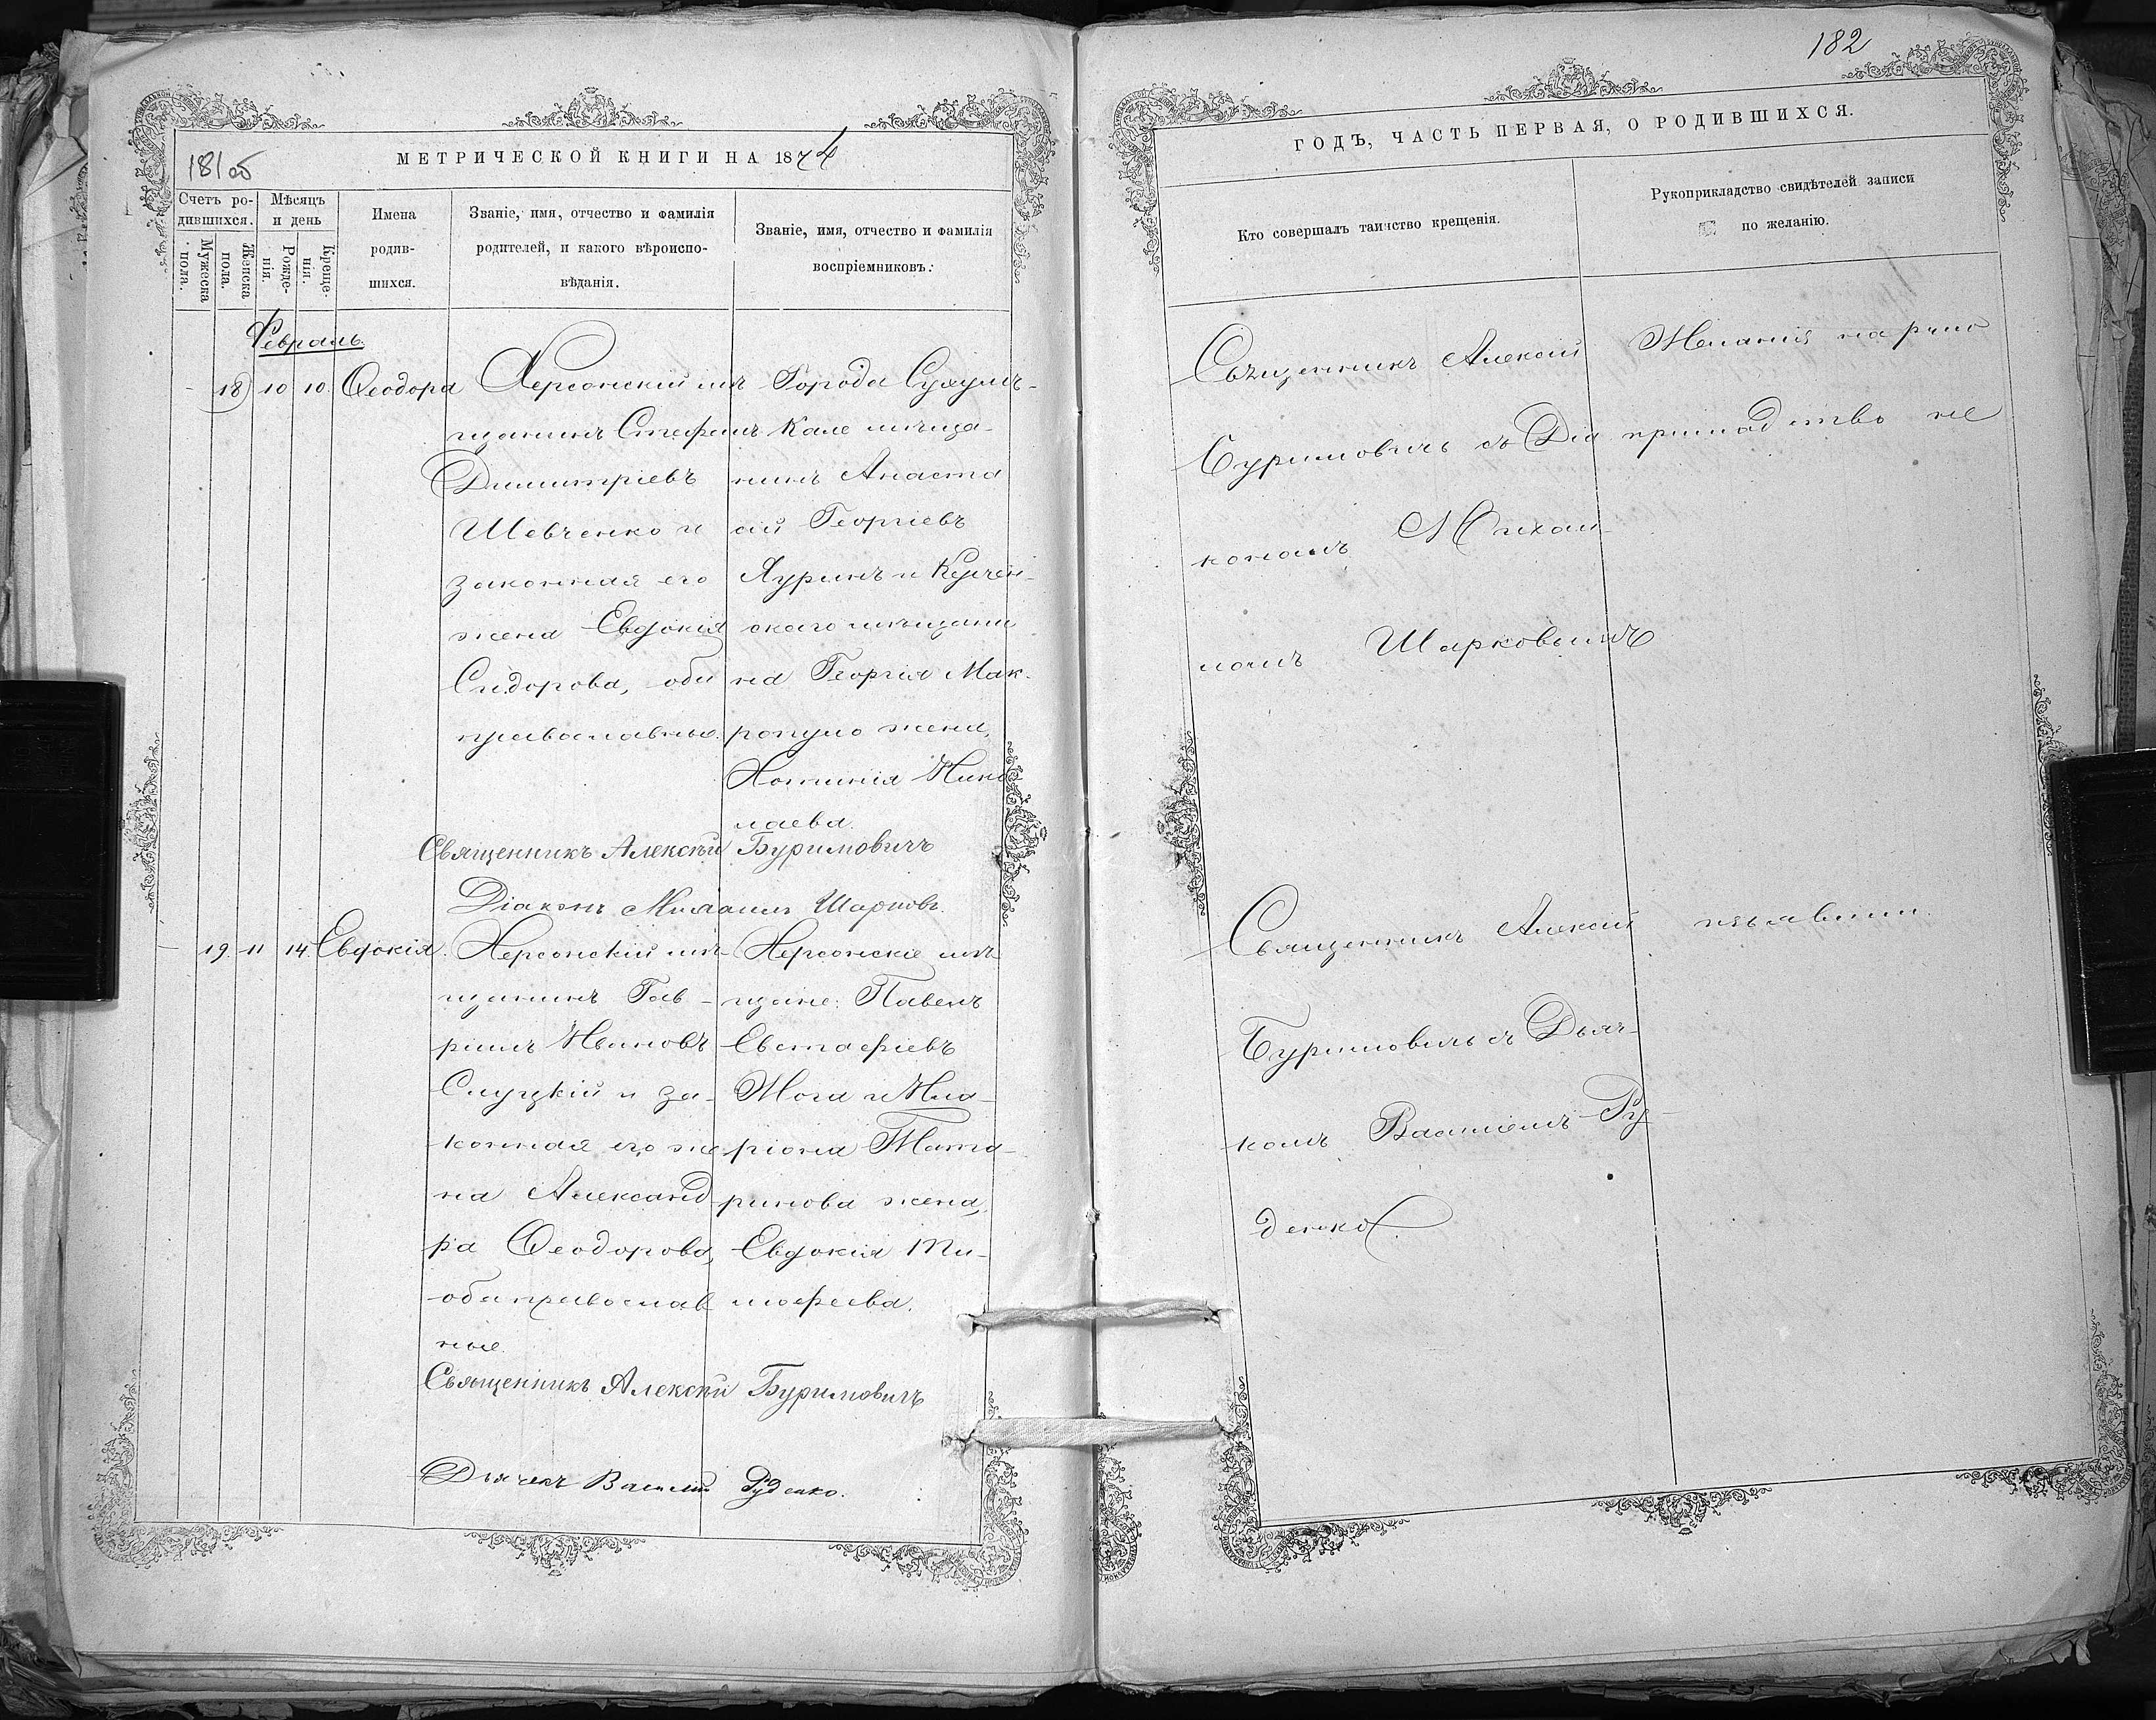 181 об
МЕТРИЧЕСКОЙ КНИГИ НА 1874
Счетъ ро-
дившихся.
Мѣсяцъ
и день
Мужеска
пола.
Женска
пола.
Рожде-
нія.
Креще-
нія.
Имена
родив-
шихся.
Званіе, имя, отчество и фамилія
родителей, и какого вѣроиспо-
вѣданія.
Званіе, имя, отчество и фамилія
воспріемниковъ.
Февраль
- 18 10 10. Ѳеодора
Херсонскій мѣ-
щанинъ Стефанъ
Димитріевъ
Шевченко и
законная его
жена Евдокія
Сидорова, оба
православные.
Города Сухумъ-
Кале мѣща-
нинъ Анаста
сій Георгіевъ
и
скаго мѣщани
на Георгія Мак-
ропуло жена,
Нико
лаева.
Священникъ Алексѣй Буримовичъ
Діаконъ Михаилъ Шарковъ.
- 19. 11 14. Евдокія.
Херсонскій мѣ-
щанинъ Гав-
ріилъ Ивановъ
Слуцкій и за-
конная его же
на Александ
ра Ѳеодорова,
оба православ
ные.
Херсонскіе мѣ
щане: Павелъ
Евстафіевъ
и Ила-
ріона Тата-
ринова жена,
Евдокія Ти-
моѳеева.
Священникъ Алексѣй Буримовичъ
Дьячекъ Василій Руденко.
182
ГОДЪ, ЧАСТЬ ПЕРВАЯ, О РОДИВШИХСЯ.
Кто совершалъ таинство крещенія.
Рукоприкладство свидѣтелей записи
по желанію.
Священникъ Алексій
Буримовичъ съ Діа
кономъ Михаи-
ломъ Шарковымъ
Желанія на руко
прикладство не
Священникъ Алексій
Буримовичъ съ Дьяч-
комъ Василіемъ Ру-
денко
изъявили.